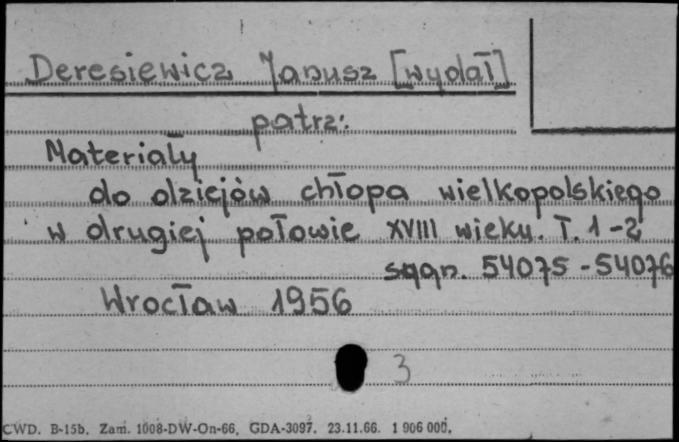 Deresiewicz Janusz [wydał]
patrz:
Materiały
do dziejów chłopa wielkopolskiego
w drugiej połowie XVIII wieku. T. 1-2
sygn. 54075-54076
Wrocław 1956
3
CWD. B-15b. Zam. 1008-DW-On-66. GDA-3097. 23.11.66. 1 906 000.